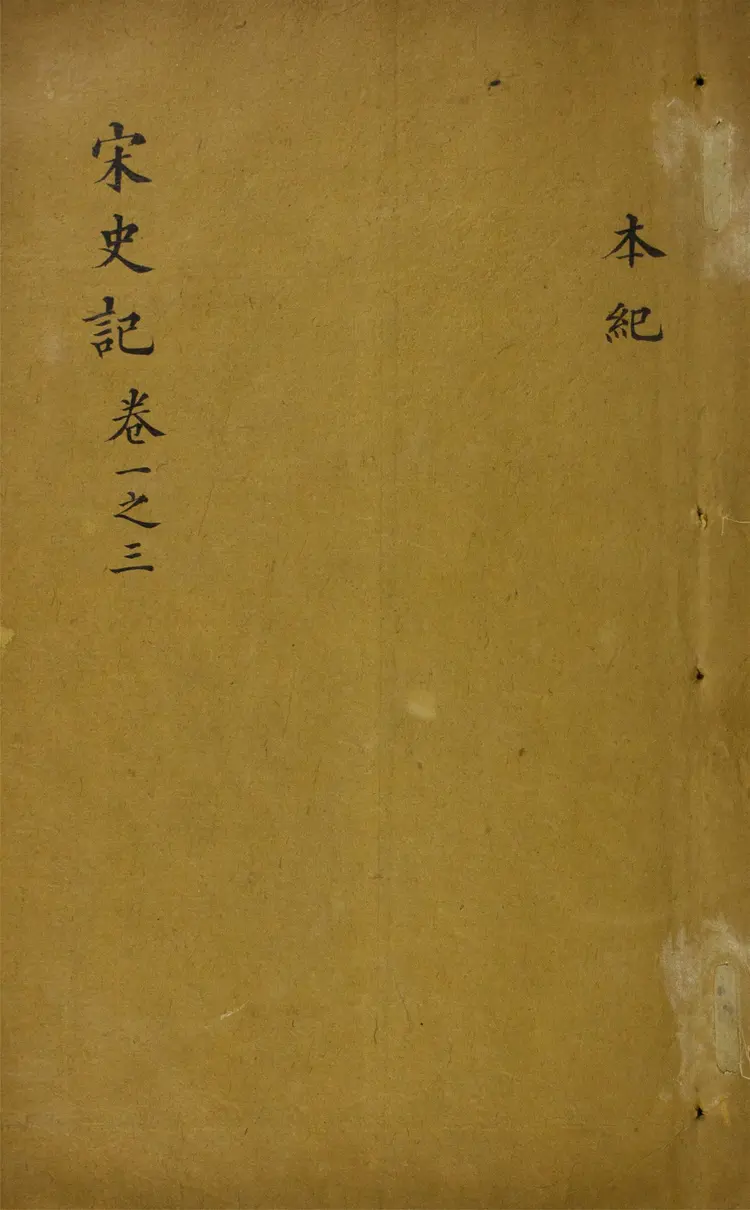 本紀
宋史記 卷一之三